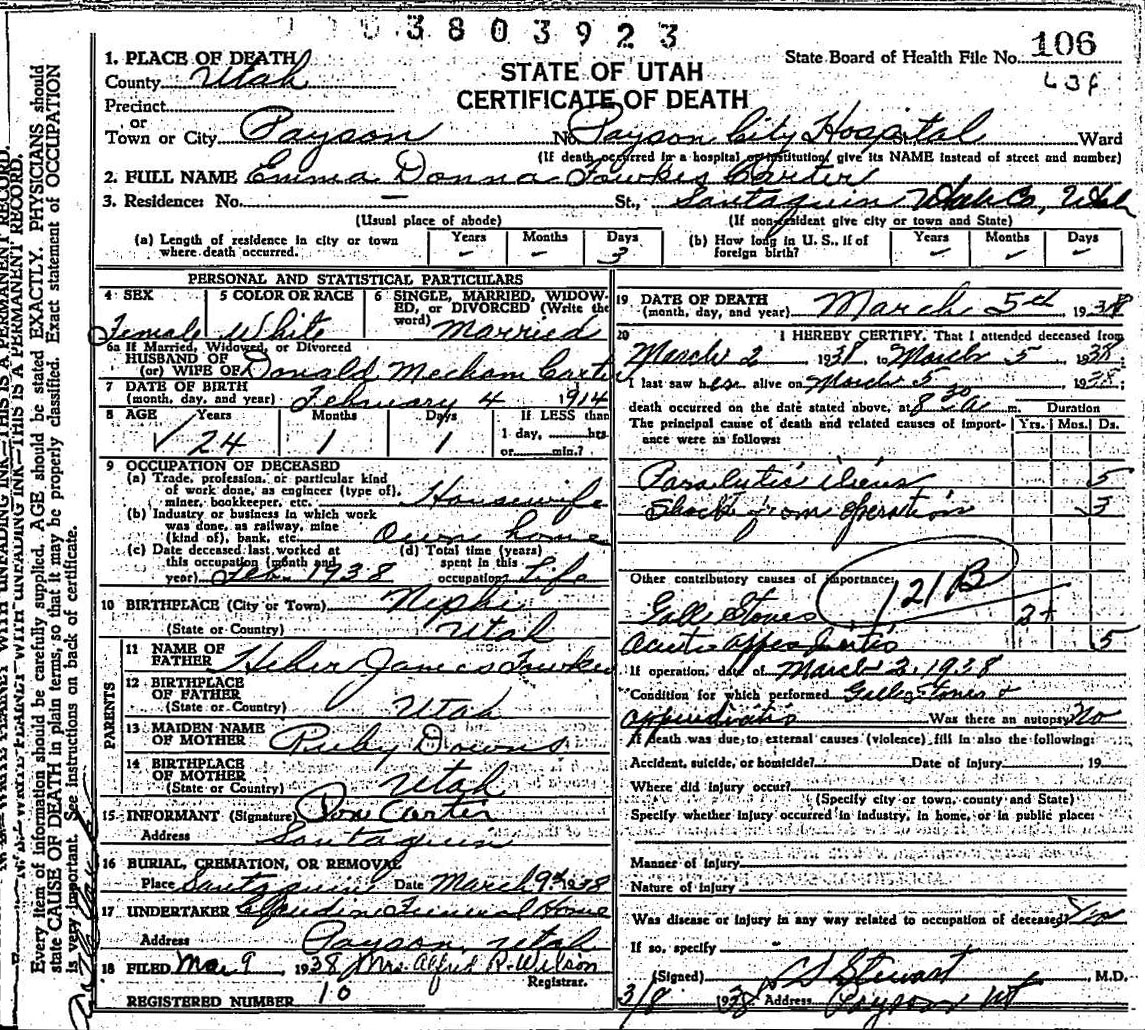 3803923
State Board of Health File No. 106
STATE OF UTAH
CERTIFICATE OF DEATH
1. PLACE OF DEATH
County Utah
Precinct
or
Town or City Payson No. Payson City Hospital St. Ward
(If death occurred in a hospital or institution, give its NAME instead of street and number)
2. FULL NAME Emma Donna Fowkes Carter
3. Residence: No. – St., Santaquin Utah Co, Utah
(Usual place of abode) (If non-resident give city or town and State)
(a) Length of residence in city or town where death occurred. Years – Months – Days 3
(b) How long in U. S., if of foreign birth? Years – Months – Days –
PERSONAL AND STATISTICAL PARTICULARS
4 SEX Female
5 COLOR OR RACE White
6 SINGLE, MARRIED, WIDOWED, OR DIVORCED (Write the word) Married
6a If Married, Widowed, or Divorced
HUSBAND OF
(or) WIFE OF Donald Mecham Carter
7 DATE OF BIRTH
(month, day, and year) February 4 1914
8 AGE Years 24 Months 1 Days 1 If LESS than 1 day, hrs. or min.?
9 OCCUPATION OF DECEASED
(a) Trade, profession, or particular kind of work done, as engineer (type of), miner, bookkeeper, etc. Housewife
(b) Industry or business in which work was done, as railway, mine (kind of), bank, etc. Own home
(c) Date deceased last worked at this occupation (month and year) 1938
(d) Total time (years) spent in this occupation Life
10 BIRTHPLACE (City or Town) Nephi
(State or Country) Utah
PARENTS
11 NAME OF FATHER Heber James Fowkes
12 BIRTHPLACE OF FATHER
(State or Country) Utah
13 MAIDEN NAME OF MOTHER Ruby Downs
14 BIRTHPLACE OF MOTHER
(State or Country) Utah
15 INFORMANT (Signature) Don Carter
Address Santaquin
16 BURIAL, CREMATION, OR REMOVAL
Place Santaquin Date March 9th 1938
17 UNDERTAKER Funeral Home
Address Payson, Utah
18 FILED Mar 9, 1938 Mrs. Alfred R. Wilson
Registrar.
REGISTERED NUMBER 10
19 DATE OF DEATH
(month, day, and year) March 5th 1938
20 I HEREBY CERTIFY, That I attended deceased from
March 2 1938 to March 5 1938
I last saw her alive on March 5 1938;
death occurred on the date stated above, at 8 30 a m.
Duration
The principal cause of death and related causes of importance were as follows: Yrs. Mos. Ds.
Paralytic ileus 5
Shock from operation 3
Other contributory causes of importance: 121B
Gall Stones 2+
Acute appendicitis 5
If operation, date of March 2, 1938
Condition for which performed Gall Stones &
appendicitis Was there an autopsy? No
If death was due to external causes (violence) fill in also the following:
Accident, suicide, or homicide? Date of injury , 19
Where did injury occur?
(Specify city or town, county and State)
Specify whether injury occurred in industry, in home, or in public place:
Manner of injury
Nature of injury
Was disease or injury in any way related to occupation of deceased?
If so, specify
(Signed) Stewart M.D.
3/8 1938 Address Payson Ut
THIS IS A PERMANENT RECORD.
WRITE PLAINLY WITH UNFADING INK—THIS IS A PERMANENT RECORD.
Every item of information should be carefully supplied. AGE should be stated EXACTLY. PHYSICIANS should
state CAUSE OF DEATH in plain terms, so that it may be properly classified. Exact statement of OCCUPATION
is very important. See instructions on back of certificate.